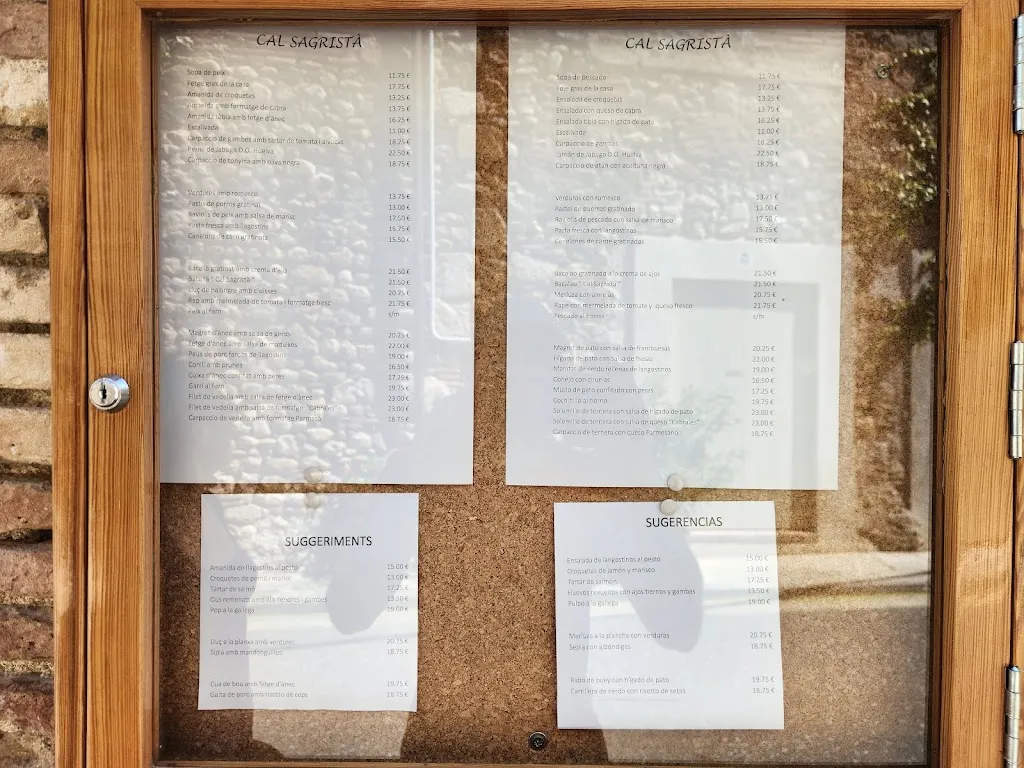 CAL SAGRISTÀ
Sopa de peix 11.75 €
Fetge gras de la casa 17.75 €
Amanida de croquetes 13.25 €
Amanida amb formatge de cabra 13.75 €
Amanida tèbia amb fetge d'ànec 16.25 €
Escalivada 11.00 €
Carpaccio de gambes amb tàrtar de tomata i alvocat 18.25 €
Pernil de Jabugo D.O. Huelva 22.50 €
Carpaccio de tonyina amb oliva negra 18.75 €
Verdures amb romesco 13.75 €
Pastís de porros gratinat 13.00 €
Raviolis de peix amb salsa de marisc 17.50 €
Pasta fresca amb llagostins 15.75 €
Canelons de carn gratinats 15.50 €
Bacallà gratinat amb crema d'alls 21.50 €
Bacallà "Cal Sagristà" 21.50 €
Lluç de palangre amb cloïsses 20.75 €
Rap amb melmelada de tomata i formatge fresc 21.75 €
Peix al forn s/m
Magret d'ànec amb salsa de gerds 20.25 €
Fetge d'ànec amb salsa de maduixes 22.00 €
Peus de porc farcits de llagostins 19.00 €
Conill amb prunes 16.50 €
Cuixa d'ànec confitat amb peres 17.25 €
Garrí al forn 19.75 €
Filet de vedella amb salsa de fetge d'ànec 23.00 €
Filet de vedella amb salsa de formatge "Cabrales" 23.00 €
Carpaccio de vedella amb formatge Parmesà 18.75 €
CAL SAGRISTÀ
Sopa de pescado 11.75 €
Foie gras de la casa 17.75 €
Ensalada de croquetas 13.25 €
Ensalada con queso de cabra 13.75 €
Ensalada tibia con hígado de pato 16.25 €
Escalivada 11.00 €
Carpaccio de gambas 18.25 €
Jamón de Jabugo D.O. Huelva 22.50 €
Carpaccio de atún con aceituna negra 18.75 €
Verduras con romesco 13.75 €
Pastel de puerros gratinado 13.00 €
Raviolis de pescado con salsa de marisco 17.50 €
Pasta fresca con langostinos 15.75 €
Canelones de carne gratinados 15.50 €
Bacalao gratinado a la crema de ajos 21.50 €
Bacalao "Cal Sagristà" 21.50 €
Merluza con almejas 20.75 €
Rape con mermelada de tomate y queso fresco 21.75 €
Pescado al horno s/m
Magret de pato con salsa de frambuesas 20.25 €
Hígado de pato con salsa de fresas 22.00 €
Manitas de cerdo rellenas de langostinos 19.00 €
Conejo con ciruelas 16.50 €
Muslo de pato confitado con peras 17.25 €
Cochinillo al horno 19.75 €
Solomillo de ternera con salsa de hígado de pato 23.00 €
Solomillo de ternera con salsa de queso "Cabrales" 23.00 €
Carpaccio de ternera con queso Parmesano 18.75 €
SUGGERIMENTS
Amanida de llagostins al pesto 15.00 €
Croquetes de pernil i marisc 13.00 €
Tàrtar de salmó 17.25 €
Ous remenats amb alls tendres i gambes 13.50 €
Pop a la gallega 19.00 €
Lluç a la planxa amb verdures 20.75 €
Sípia amb mandonguilles 18.75 €
Cua de bou amb fetge d'ànec 19.75 €
Galta de porc amb risotto de ceps 18.75 €
SUGERENCIAS
Ensalada de langostinos al pesto 15.00 €
Croquetas de jamón y marisco 13.00 €
Tartar de salmón 17.25 €
Huevos revueltos con ajos tiernos y gambas 13.50 €
Pulpo a la gallega 19.00 €
Merluza a la plancha con verduras 20.75 €
Sepia con albóndigas 18.75 €
Rabo de buey con hígado de pato 19.75 €
Carrillera de cerdo con risotto de setas 18.75 €